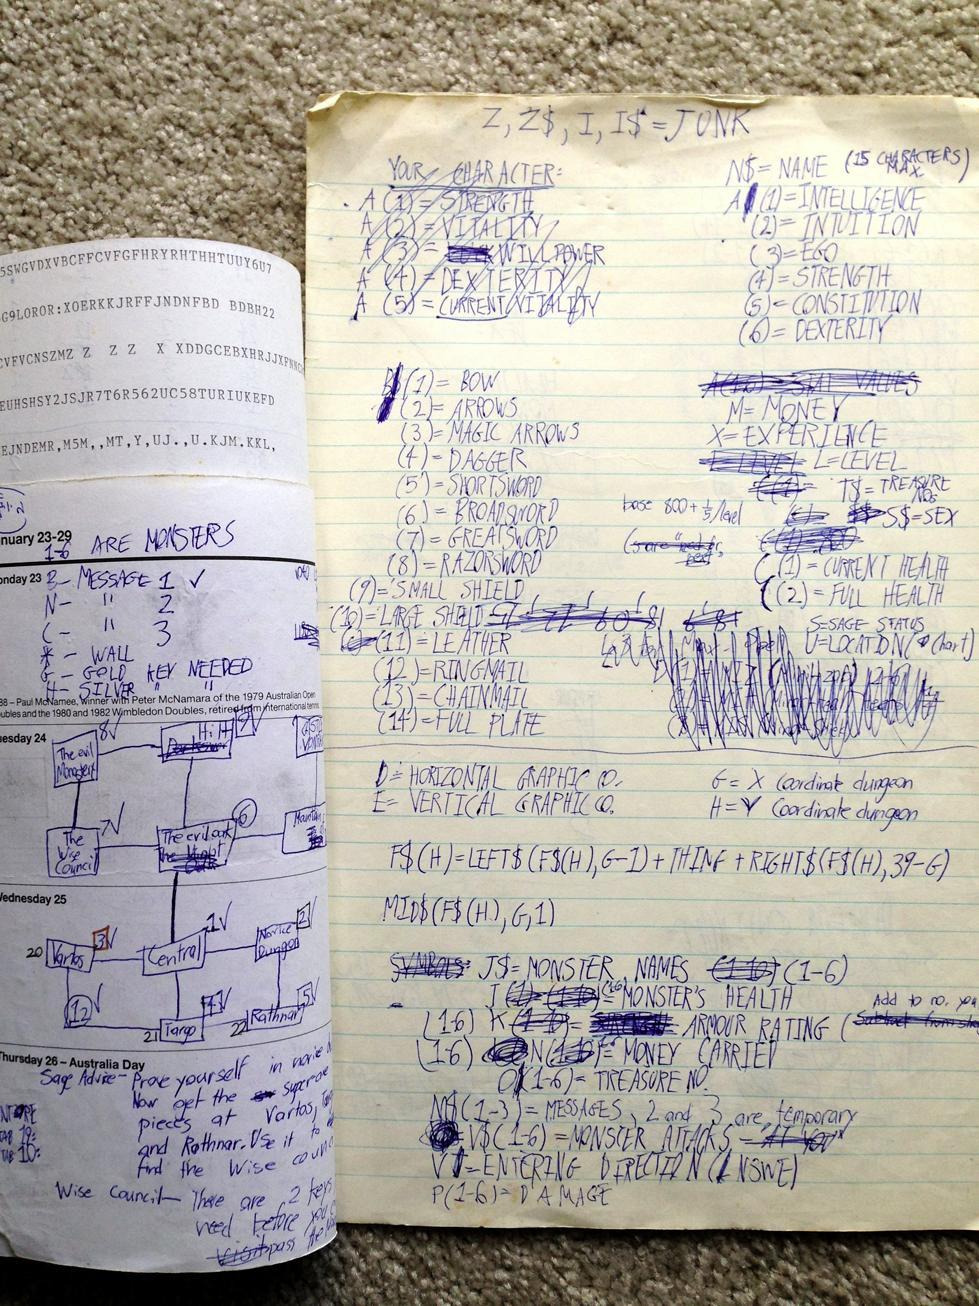 5SWGVDXVBCFFCVFGFHRYRHTHHTUUY6U7
G9LOROR:XOERKKJRFFJNDNFBD BDBH22
CVFVCNSZMZ Z Z Z X XDDGCEBXHRJJXFNNC
EUHSHSY2JSJR7T6R562UC58TURIUKEFD
EJNDEMR,M5M,,MT,Y,UJ.,U.KJM.KKL,
nuary 23-29
1-6 ARE MONSTERS
onday 23
B- MESSAGE 1 ✓
N- " 2
C- " 3
* - WALL
G- GOLD KEY NEEDED
H- SILVER " "
88 – Paul McNamee, winner with Peter McNamara of the 1979 Australian Open
oubles and the 1980 and 1982 Wimbledon Doubles, retired from international tennis
uesday 24
The evil
8✓
Hi H
9✓
The Wise Council
7✓
The evil oak
6
Mountain
ednesday 25
20 Vartos
3✓
Central
1✓
Novice Dungeon
2✓
12
21 Targo
4✓
22 Rathnar
5✓
hursday 26 – Australia Day
Sage Advice- Prove yourself in novice
Now get the
pieces at Vartos,
and Rathnar. Use it to
find the Wise
Wise Council- There are 2 keys
need before you
pass the
Z, Z$, I, I$ = JUNK
YOUR CHARACTER:
A (1) = STRENGTH
A (2) = VITALITY
A (3) = WILLPOWER
A (4) = DEXTERITY
A (5) = CURRENT VITALITY
N$ = NAME (15 CHARACTERS MAX)
A (1) = INTELLIGENCE
(2) = INTUITION
(3) = EGO
(4) = STRENGTH
(5) = CONSTITUTION
(6) = DEXTERITY
B (1) = BOW
(2) = ARROWS
(3) = MAGIC ARROWS
(4) = DAGGER
(5) = SHORTSWORD
(6) = BROADSWORD
(7) = GREATSWORD
(8) = RAZORSWORD
(9) = SMALL SHIELD
(10) = LARGE SHIELD
(11) = LEATHER
(12) = RINGMAIL
(13) = CHAINMAIL
(14) = FULL PLATE
M = MONEY
X = EXPERIENCE
L = LEVEL
T$ = TREASURE NOS
base 800 + 1/5/level
S$ = SEX
C (1) = CURRENT HEALTH
(2) = FULL HEALTH
S = SAGE STATUS
U = LOCATION (chart)
D = HORIZONTAL GRAPHIC CO.
E = VERTICAL GRAPHIC CO.
G = X Coordinate dungeon
H = Y Coordinate dungeon
F$(H)=LEFT$(F$(H),G-1)+THING+RIGHT$(F$(H),39-G)
MID$(F$(H),G,1)
SYMBOLS: J$ = MONSTER NAMES (1-6)
J (1-6) = MONSTER'S HEALTH
(1-6) K = ARMOUR RATING (Add to no. you
(1-6) N = MONEY CARRIED
O (1-6) = TREASURE NO.
M$ (1-3) = MESSAGES, 2 and 3 are temporary
V$ (1-6) = MONSTER ATTACKS
V = ENTERING DIRECTION (NSWE)
P(1-6) = DAMAGE